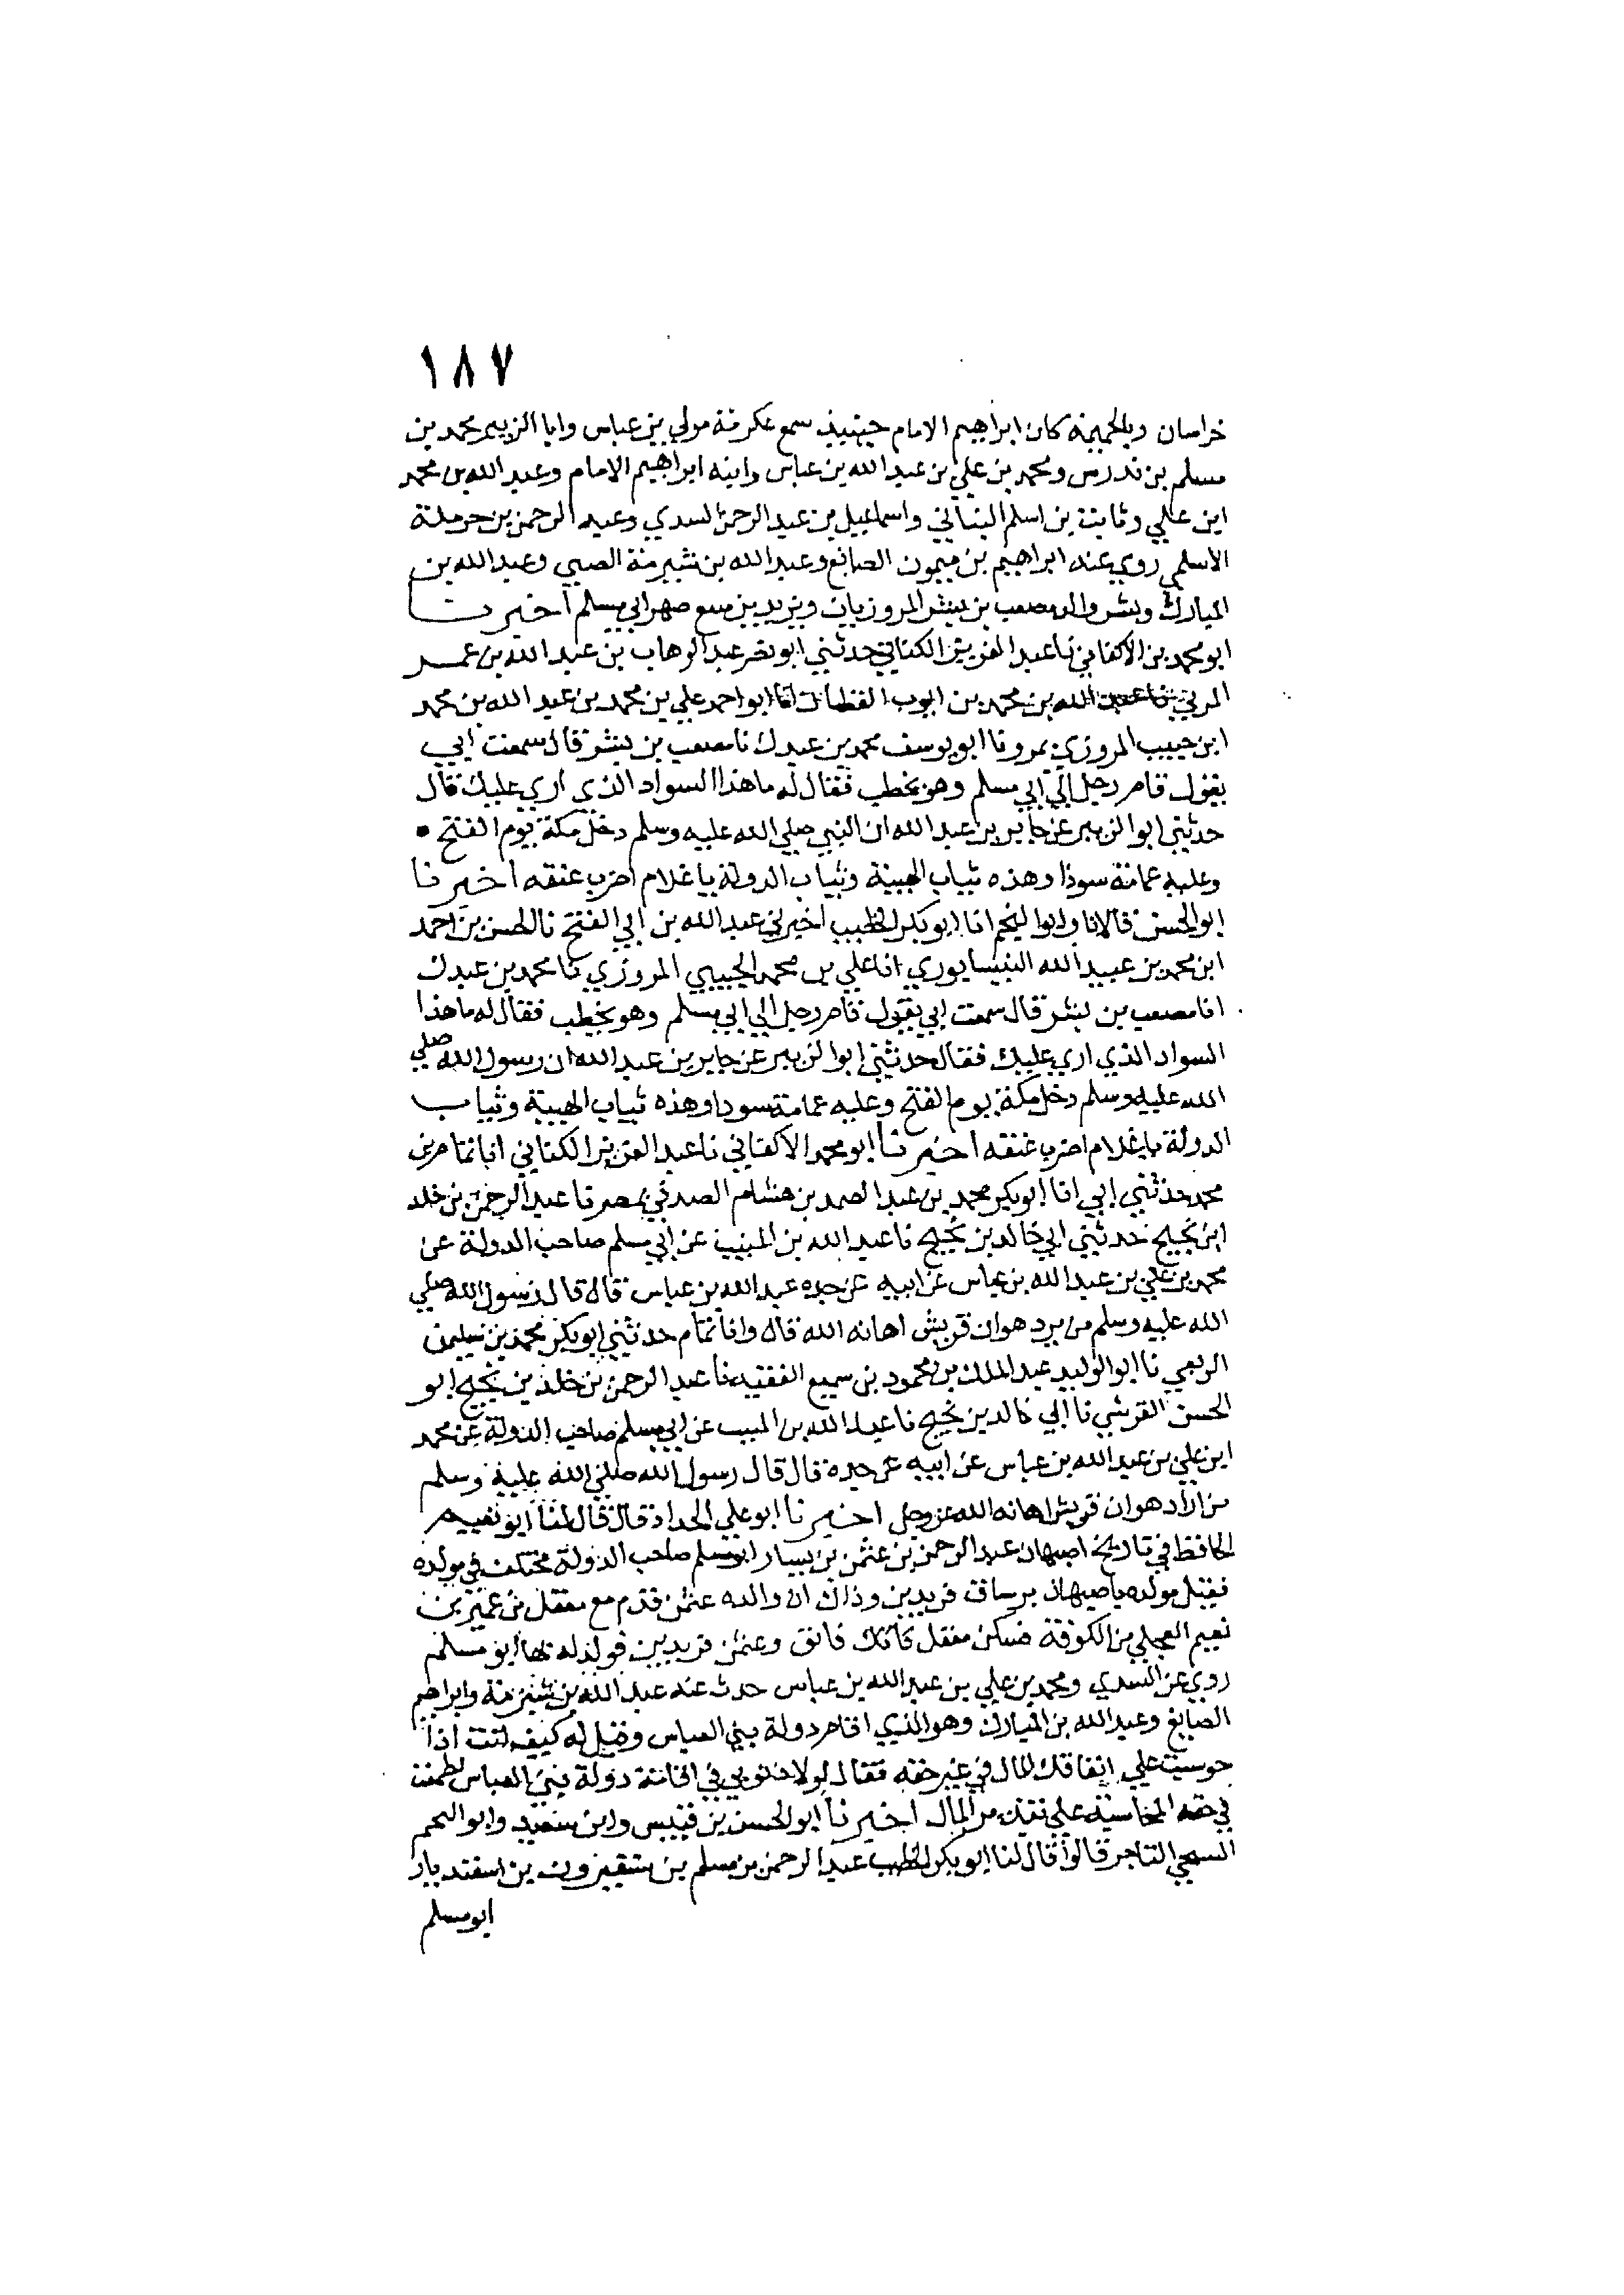 ١٨٧
خراسان وبالحميمة كان ابراهيم الامام حينيذ سمع عكرمة مولي بن عباس وابا الزبير محمد بن
مسلم بن تدرس ومحمد بن علي بن عبد الله بن عباس وابنه ابراهيم الامام وعبد الله بن محمد
ابن علي وثابت بن اسلم البناني واسماعيل بن عبد الرحمن السدي وعبد الرحمن بن حرملة
الاسلمي روي عنه ابراهيم بن ميمون الصايغ وعبد الله بن شبرمة الضبي وعبد الله بن
المبارك وبشر والد مصعب بن بشر المروزيان ويزيد بن منيع صهر ابي مسلم اخبرنا
ابو محمد بن الاكفاني نا عبد العزيز الكتاني حدثني ابو نصر عبد الوهاب بن عبد الله بن عمر
المري نا عبد الله بن محمد بن ايوب القطان انا ابو احمد علي بن محمد بن عبد الله بن محمد
ابن حبيب المروزي بمرو نا ابو يوسف محمد بن عبدك نا مصعب بن بشر قال سمعت ابي
يقول قام رجل الي ابي مسلم وهو يخطب فقال له ما هذا السواد الذي اري عليك قال
حدثني ابو الزبير عن جابر بن عبد الله ان النبي صلي الله عليه وسلم دخل مكة يوم الفتح
وعليه عمامة سودا وهذه ثياب الهيبة وثياب الدولة يا غلام اضرب عنقه اخبرنا
ابو الحسن قالانا وابو النجم انا ابو بكر الخطيب اخبرني عبد الله بن ابي الفتح نا الحسن بن احمد
ابن محمد بن عبيد الله النيسابوري انا علي بن محمد الحبيبي المروزي نا محمد بن عبدك
انا مصعب بن بشر قال سمعت ابي يقول قام رجل الي ابي مسلم وهو يخطب فقال له ما هذا
السواد الذي اري عليك فقال حدثني ابو الزبير عن جابر بن عبد الله ان رسول الله صلي
الله عليه وسلم دخل مكة يوم الفتح وعليه عمامة سودا وهذه ثياب الهيبة وثياب
الدولة يا غلام اضرب عنقه اخبرنا ابو محمد الاكفاني نا عبد العزيز الكتاني انبا تمام بن
محمد حدثني ابي انا ابو بكر محمد بن عبد الصمد بن هشام الصدفي بمصر نا عبد الرحمن بن خلد
ابن نجيح حدثني ابي خالد بن نجيح نا عبد الله بن المبيب عن ابي مسلم صاحب الدولة عن
محمد بن علي بن عبد الله بن عباس عن ابيه عن جده عبد الله بن عباس قال قال رسول الله صلي
الله عليه وسلم من يرد هوان قريش اهانه الله قال وانا تمام حدثني ابو بكر محمد بن سليمن
الربعي نا ابو الوليد عبد الملك بن محمود بن سميع الفقيه نا عبد الرحمن بن خلد بن نجيح ابو
الحسن القرشي نا ابي خالد بن نجيح نا عبد الله بن المبيب عن ابي مسلم صاحب الدولة عن محمد
ابن علي بن عبد الله بن عباس عن ابيه عن جده قال قال رسول الله صلي الله عليه وسلم
من اراد هوان قريش اهانه الله عز وجل اخبرنا ابو علي الحداد قال قال لنا ابو نعيم
الحافظ في تاريخ اصبهان عبد الرحمن بن عثمن بن يسار ابو مسلم صاحب الدولة مختلف في مولده
فقيل مولده باصبهان برساق فريدين وذاك ان والده عثمن قدم مع معقل بن عمير بن
نعيم العجلي من الكوفة فسكن معقل فانك فانق وعثمن فريدين فولد له بها ابو مسلم
روي عن السدي ومحمد بن علي بن عبد الله بن عباس حدث عنه عبد الله بن شبرمة وابراهيم
الصايغ وعبد الله بن المبارك وهو الذي اقام دولة بني العباس وقيل له كيف انت اذا
حوسبت علي انفاقك المال في غير حقه فقال لولا ذنوبي في اقامة دولة بني العباس لطمعت
في المحاسبة علي من المال اخبرنا ابو الحسن بن قبيس وابن سعيد وابو النجم
السيحي التاجر قالوا قال لنا ابو بكر الخطيب عبد الرحمن بن مسلم بن سنفيرون بن اسفنديار
ابو مسلم